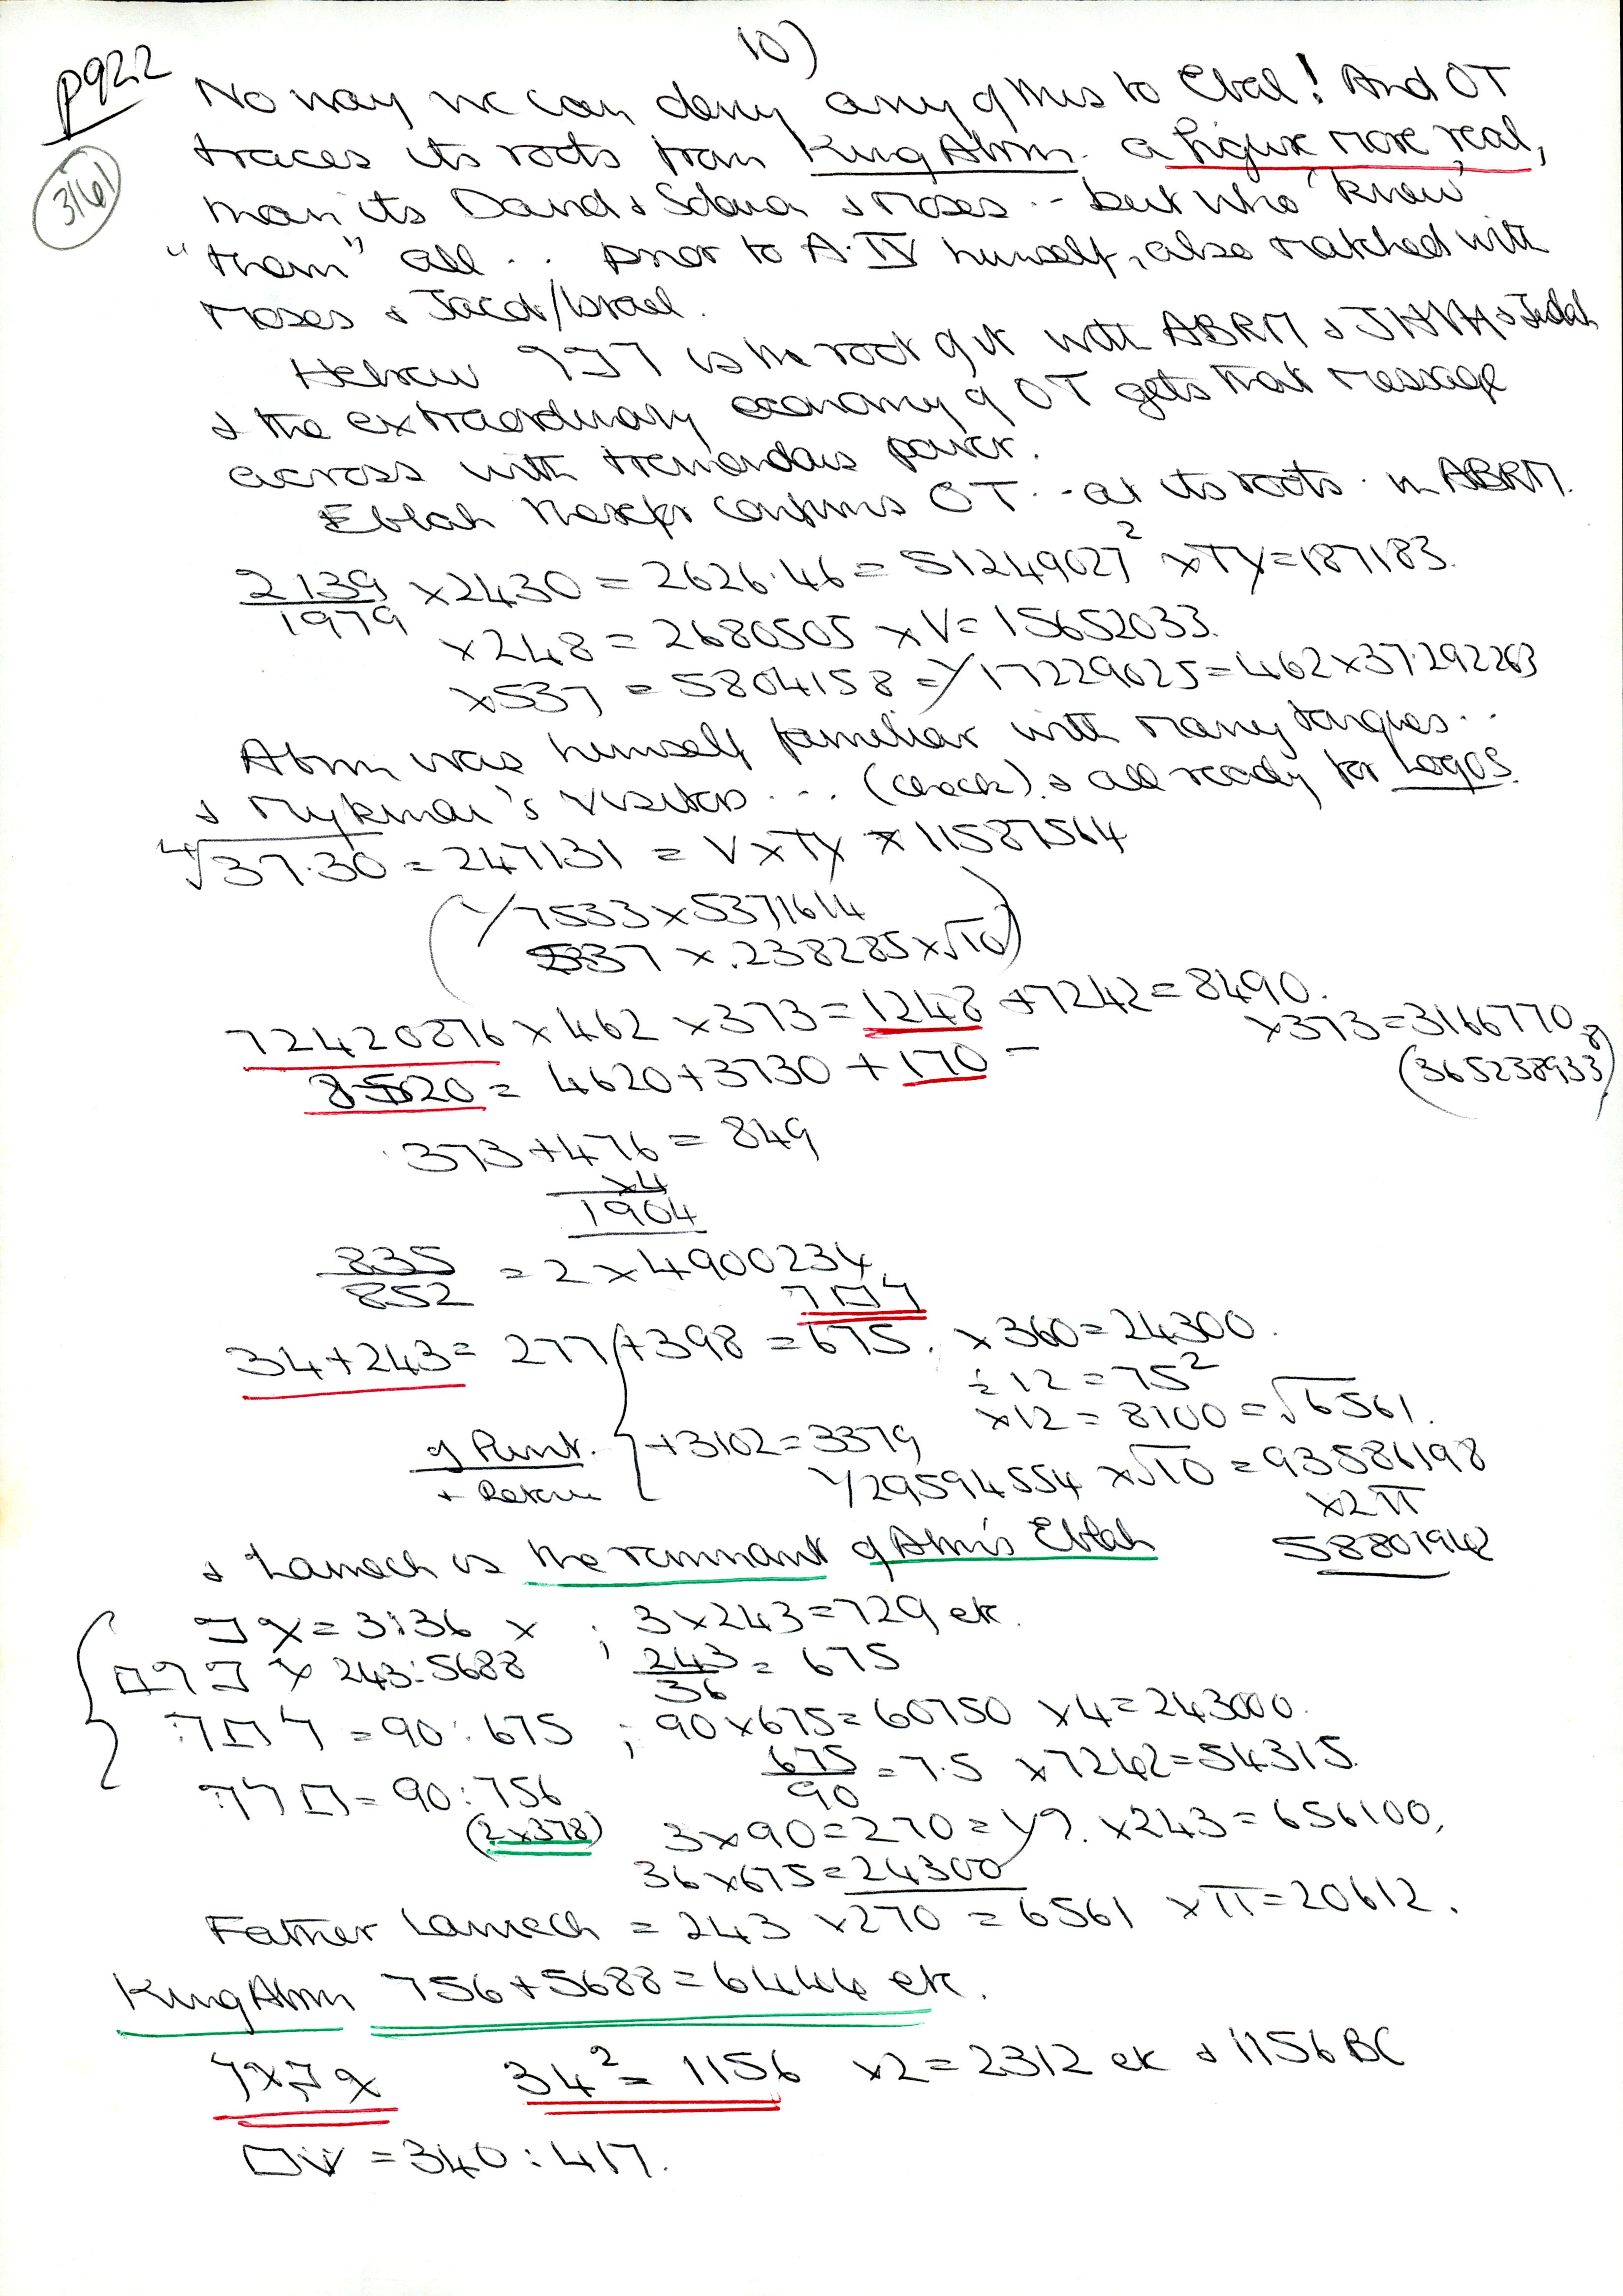 10)
p922
3161
No way we can deny any of this to Ebal! And OT
traces its roots from King Abrm. a figure more real,
than its David & & Moses .. but who 'knew'
"them" all .. prior to A.IV himself, also matched with
Moses & Jacob/Israel.
Hebrew is the root of it with ABRM & JHVH & Judah
& the extraordinary economy of OT gets that message
across with tremendous power.
Eblah therefor confirms OT .. at its roots in ABRM.
2139/1979 × 2430 = 2626.46 = 51249027² × TY = 187183.
× 248 = 2680505 × V = 15652033.
× 537 = 5804158 = Y 17229025 = 462 × 37.292263
Abrm was himself familiar with many tongues ..
& 's visitors ... (check). & all ready for Logos.
∜37.30 = 247131 = V × TY × 11587564
(Y 7533 × 5371614
537 × .238285 × √10)
72420876 × 462 × 373 = 1248 + 7242 = 8490.
× 373 = 3166770
(365238933)
8520 = 4620 + 3730 + 170 –
373 + 476 = 849
×4
1904
835/852 = 2 × 4900234
למך
34 + 243 = 277 + 398 = 675. × 360 = 24300.
÷ 12 = 75²
× 12 = 8100 = √6561.
of Punt. + 3102 = 3379
Y 29594554 × √10 = 93586198
× 2π
58801942
& Lamech is the remnant of Abrm's Eblah
= 3:36 × ; 3 × 243 = 729 etc.
× 243:5688 243/36 = 675
= 90:675 ; 90 × 675 = 60750 × 4 = 243000.
675/90 = 7.5 × 7242 = 54315.
= 90:756
(2 × 378) 3 × 90 = 270 = Y?. × 243 = 656100,
36 × 675 = 24300
Father Lamech = 243 × 270 = 6561 × π = 20612.
King Abrm 756 + 5688 = 6444 etc.
34² = 1156 × 2 = 2312 etc & 1156 BC
= 340:417.